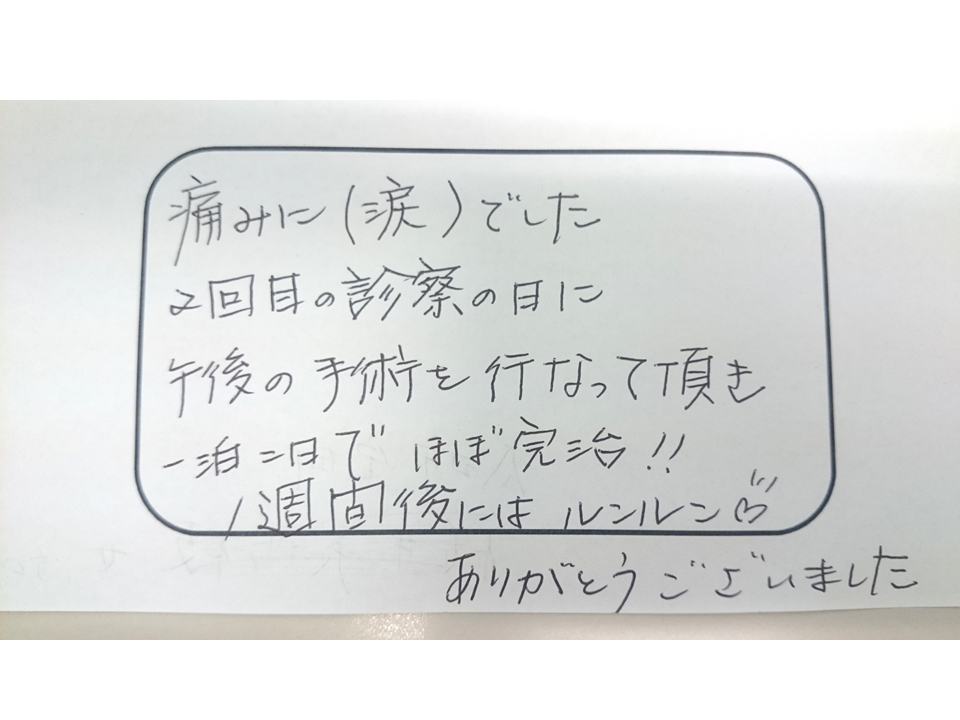 痛みに(涙)でした
2回目の診察の日に
午後の手術を行なって頂き
一泊二日でほぼ完治!!
1週間後にはルンルン♡
ありがとうございました